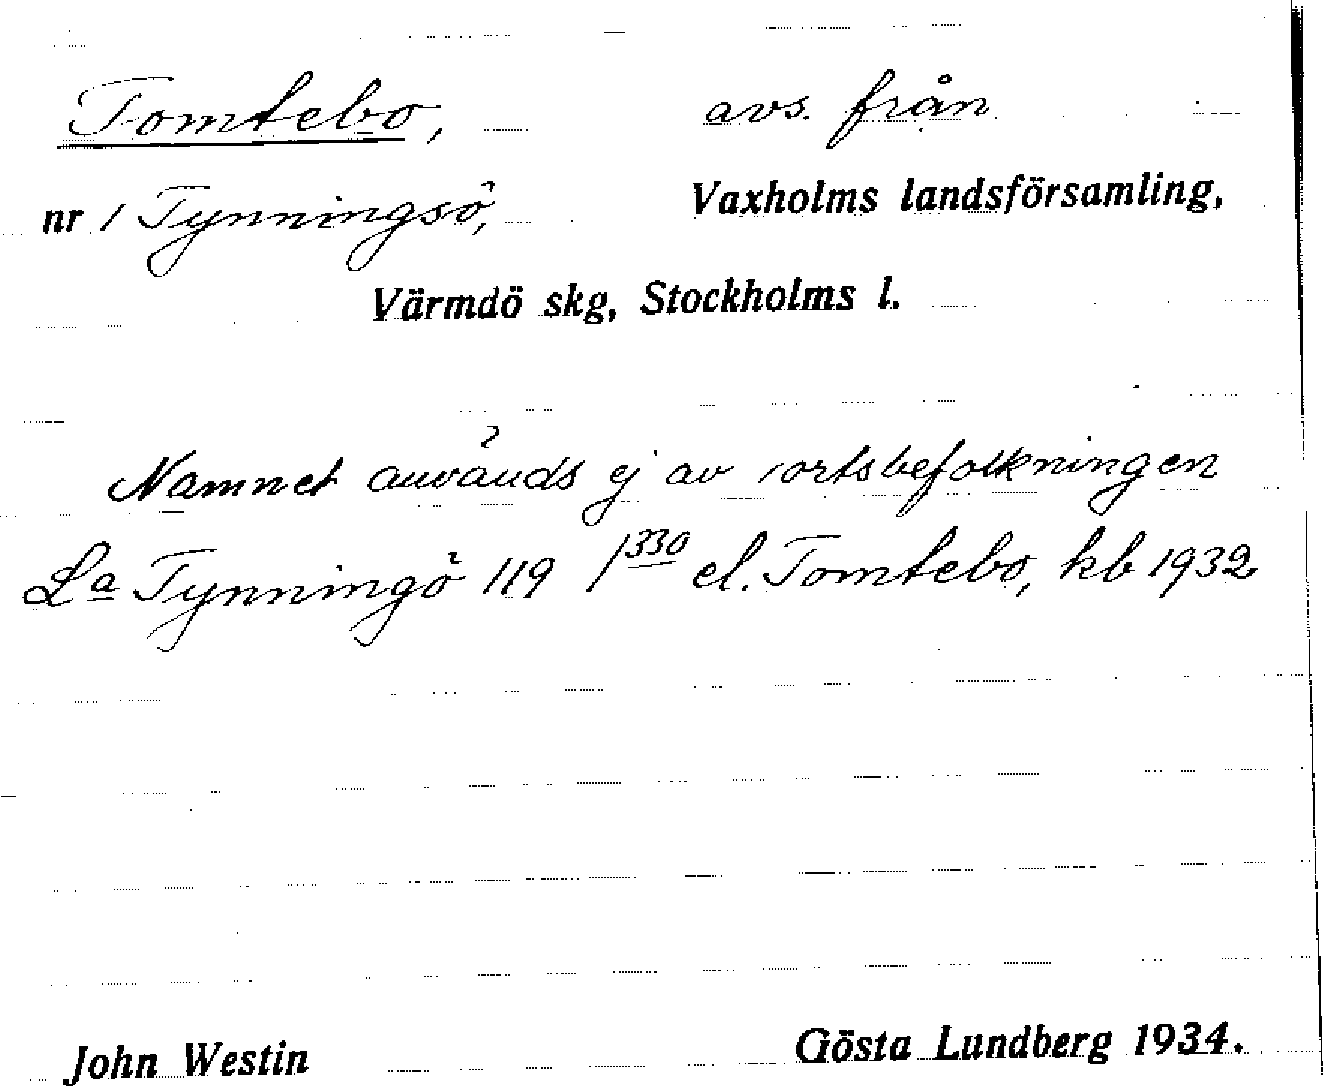 Tomtebo, avs. från
nr 1 Tynningsö, Vaxholms landsförsamling,
Värmdö skg, Stockholms l.
Namnet används ej av ortsbefolkningen
La Tynningö 119 1 330 el. Tomtebo, kb 1932
John Westin Gösta Lundberg 1934.